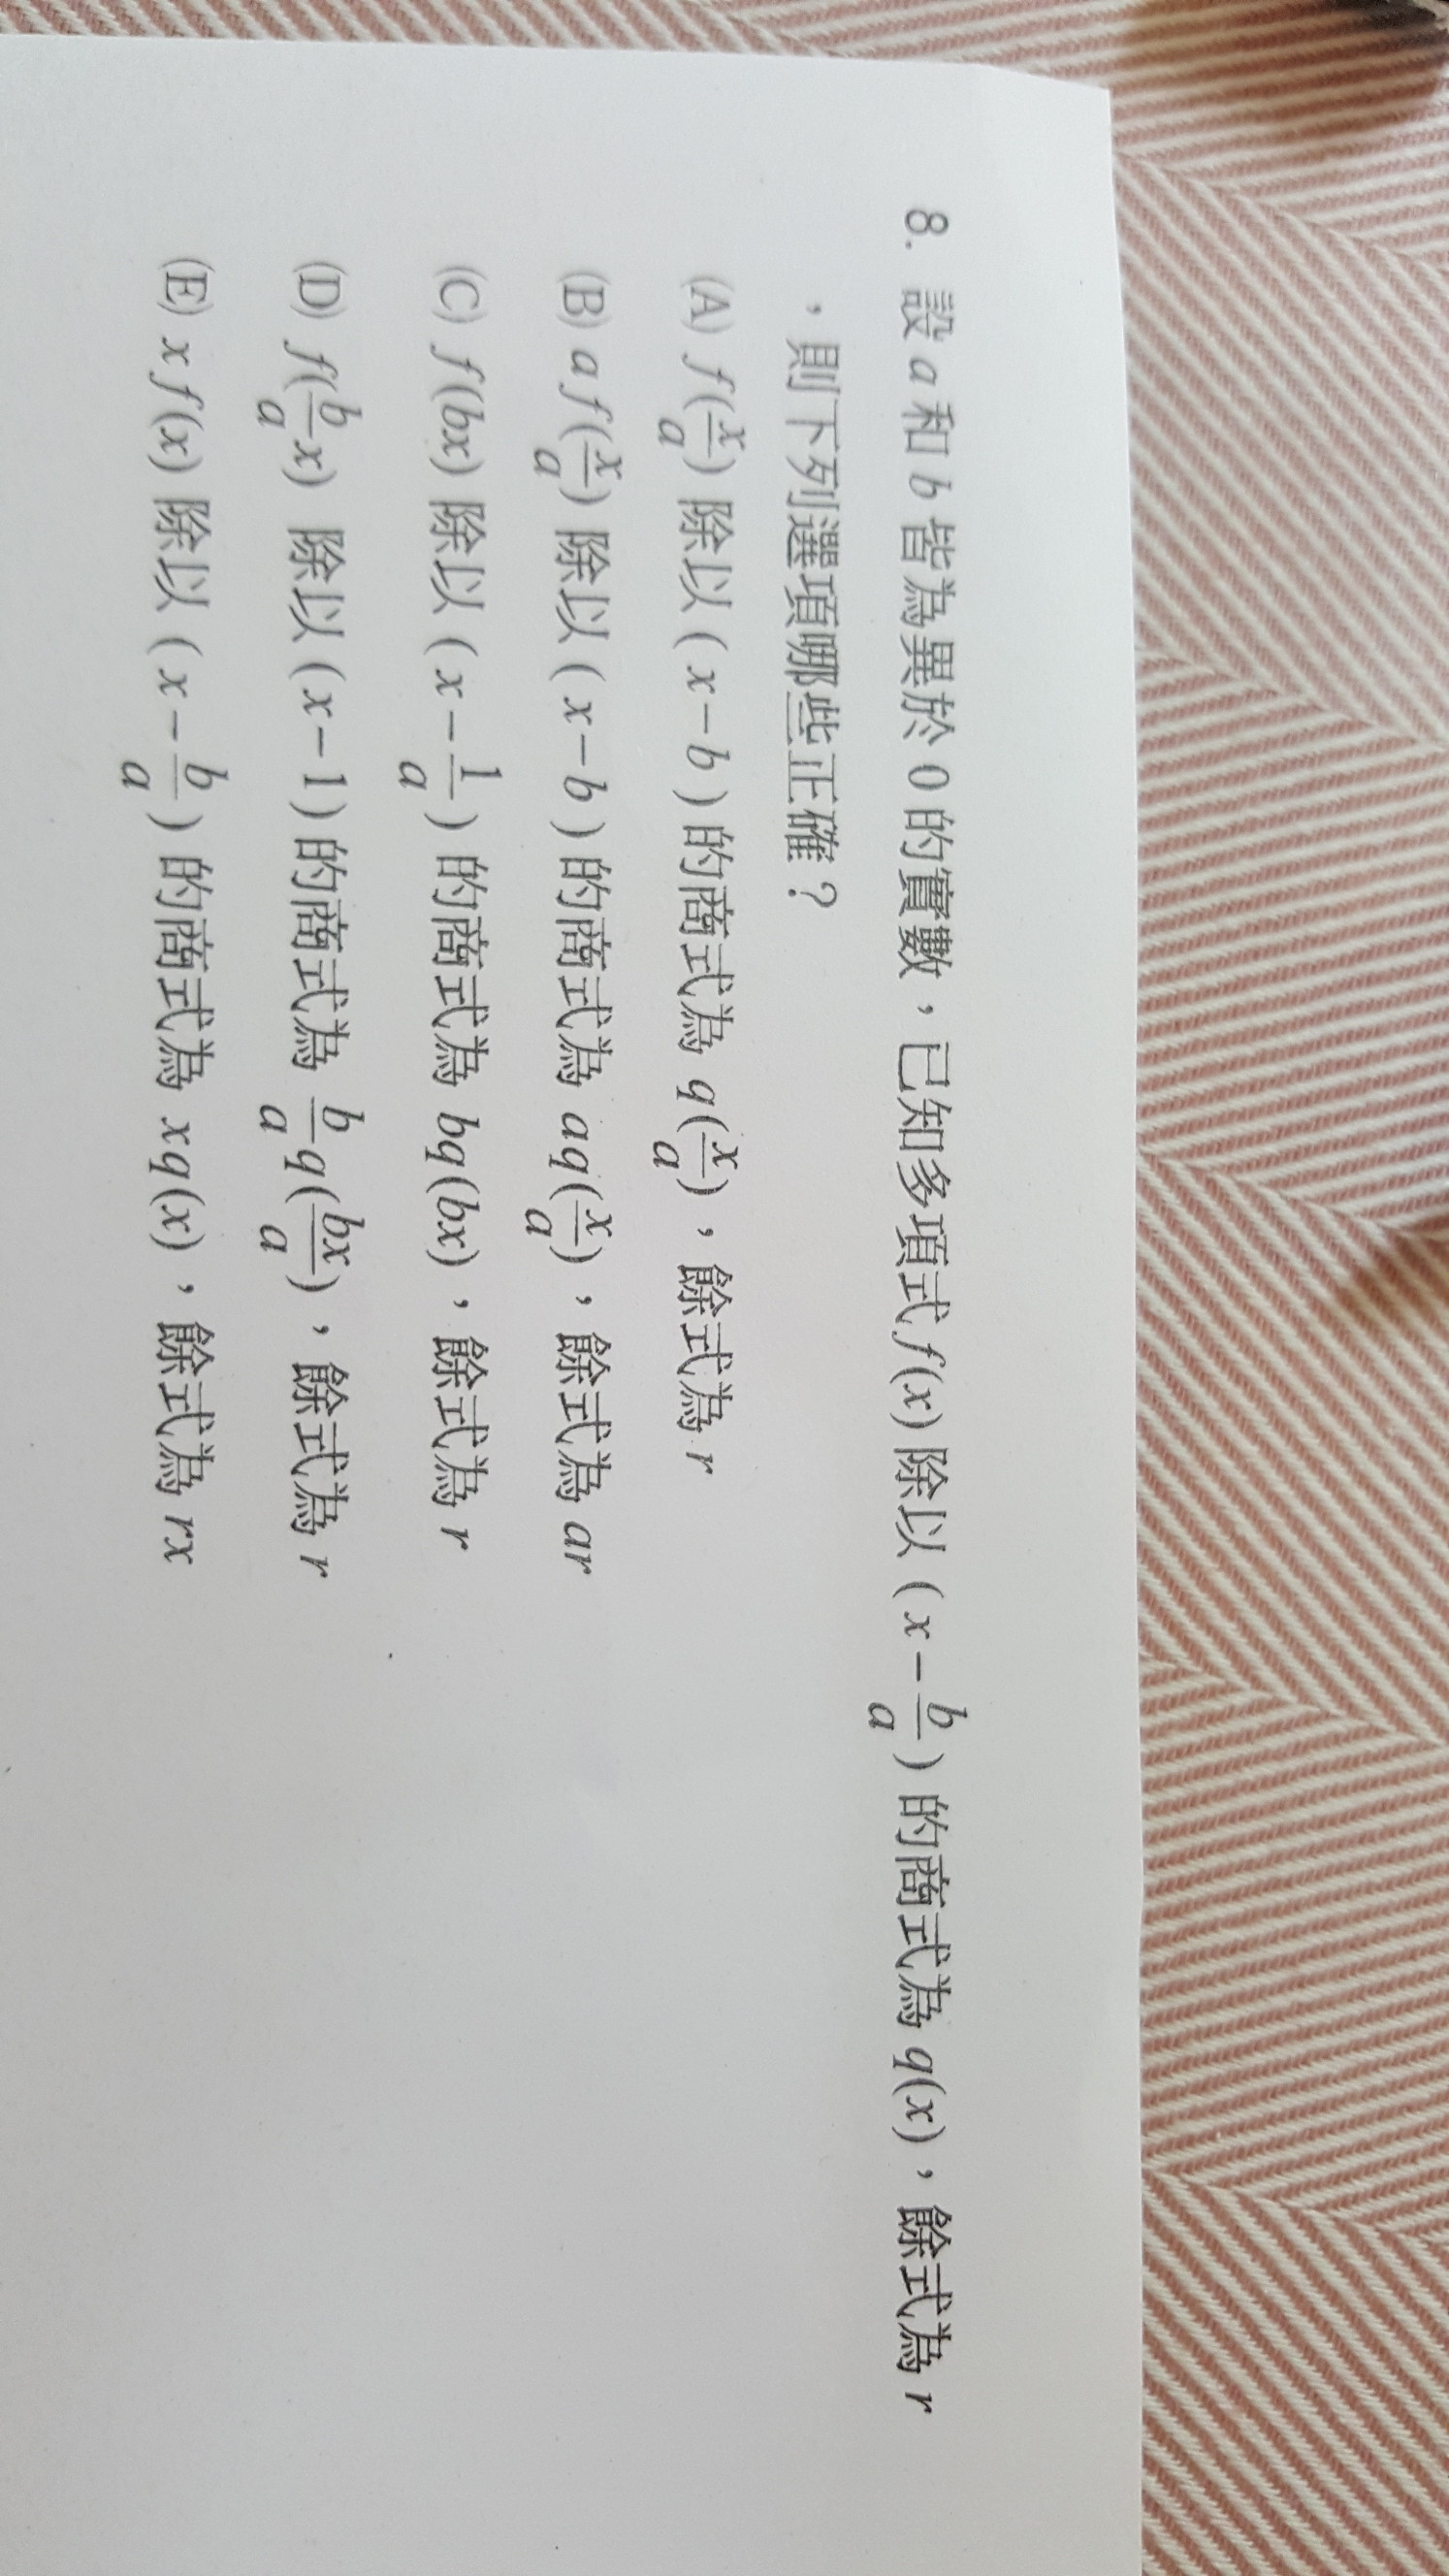 8. 設 a 和 b 皆為異於 0 的實數，已知多項式 f(x) 除以 ( x − b/a ) 的商式為 q(x)，餘式為 r
，則下列選項哪些正確？
(A) f(x/a) 除以 ( x − b ) 的商式為 q(x/a)，餘式為 r
(B) a f(x/a) 除以 ( x − b ) 的商式為 aq(x/a)，餘式為 ar
(C) f(bx) 除以 ( x − 1/a ) 的商式為 bq(bx)，餘式為 r
(D) f(b/a x) 除以 ( x − 1 ) 的商式為 b/a q(bx/a)，餘式為 r
(E) x f(x) 除以 ( x − b/a ) 的商式為 xq(x)，餘式為 rx